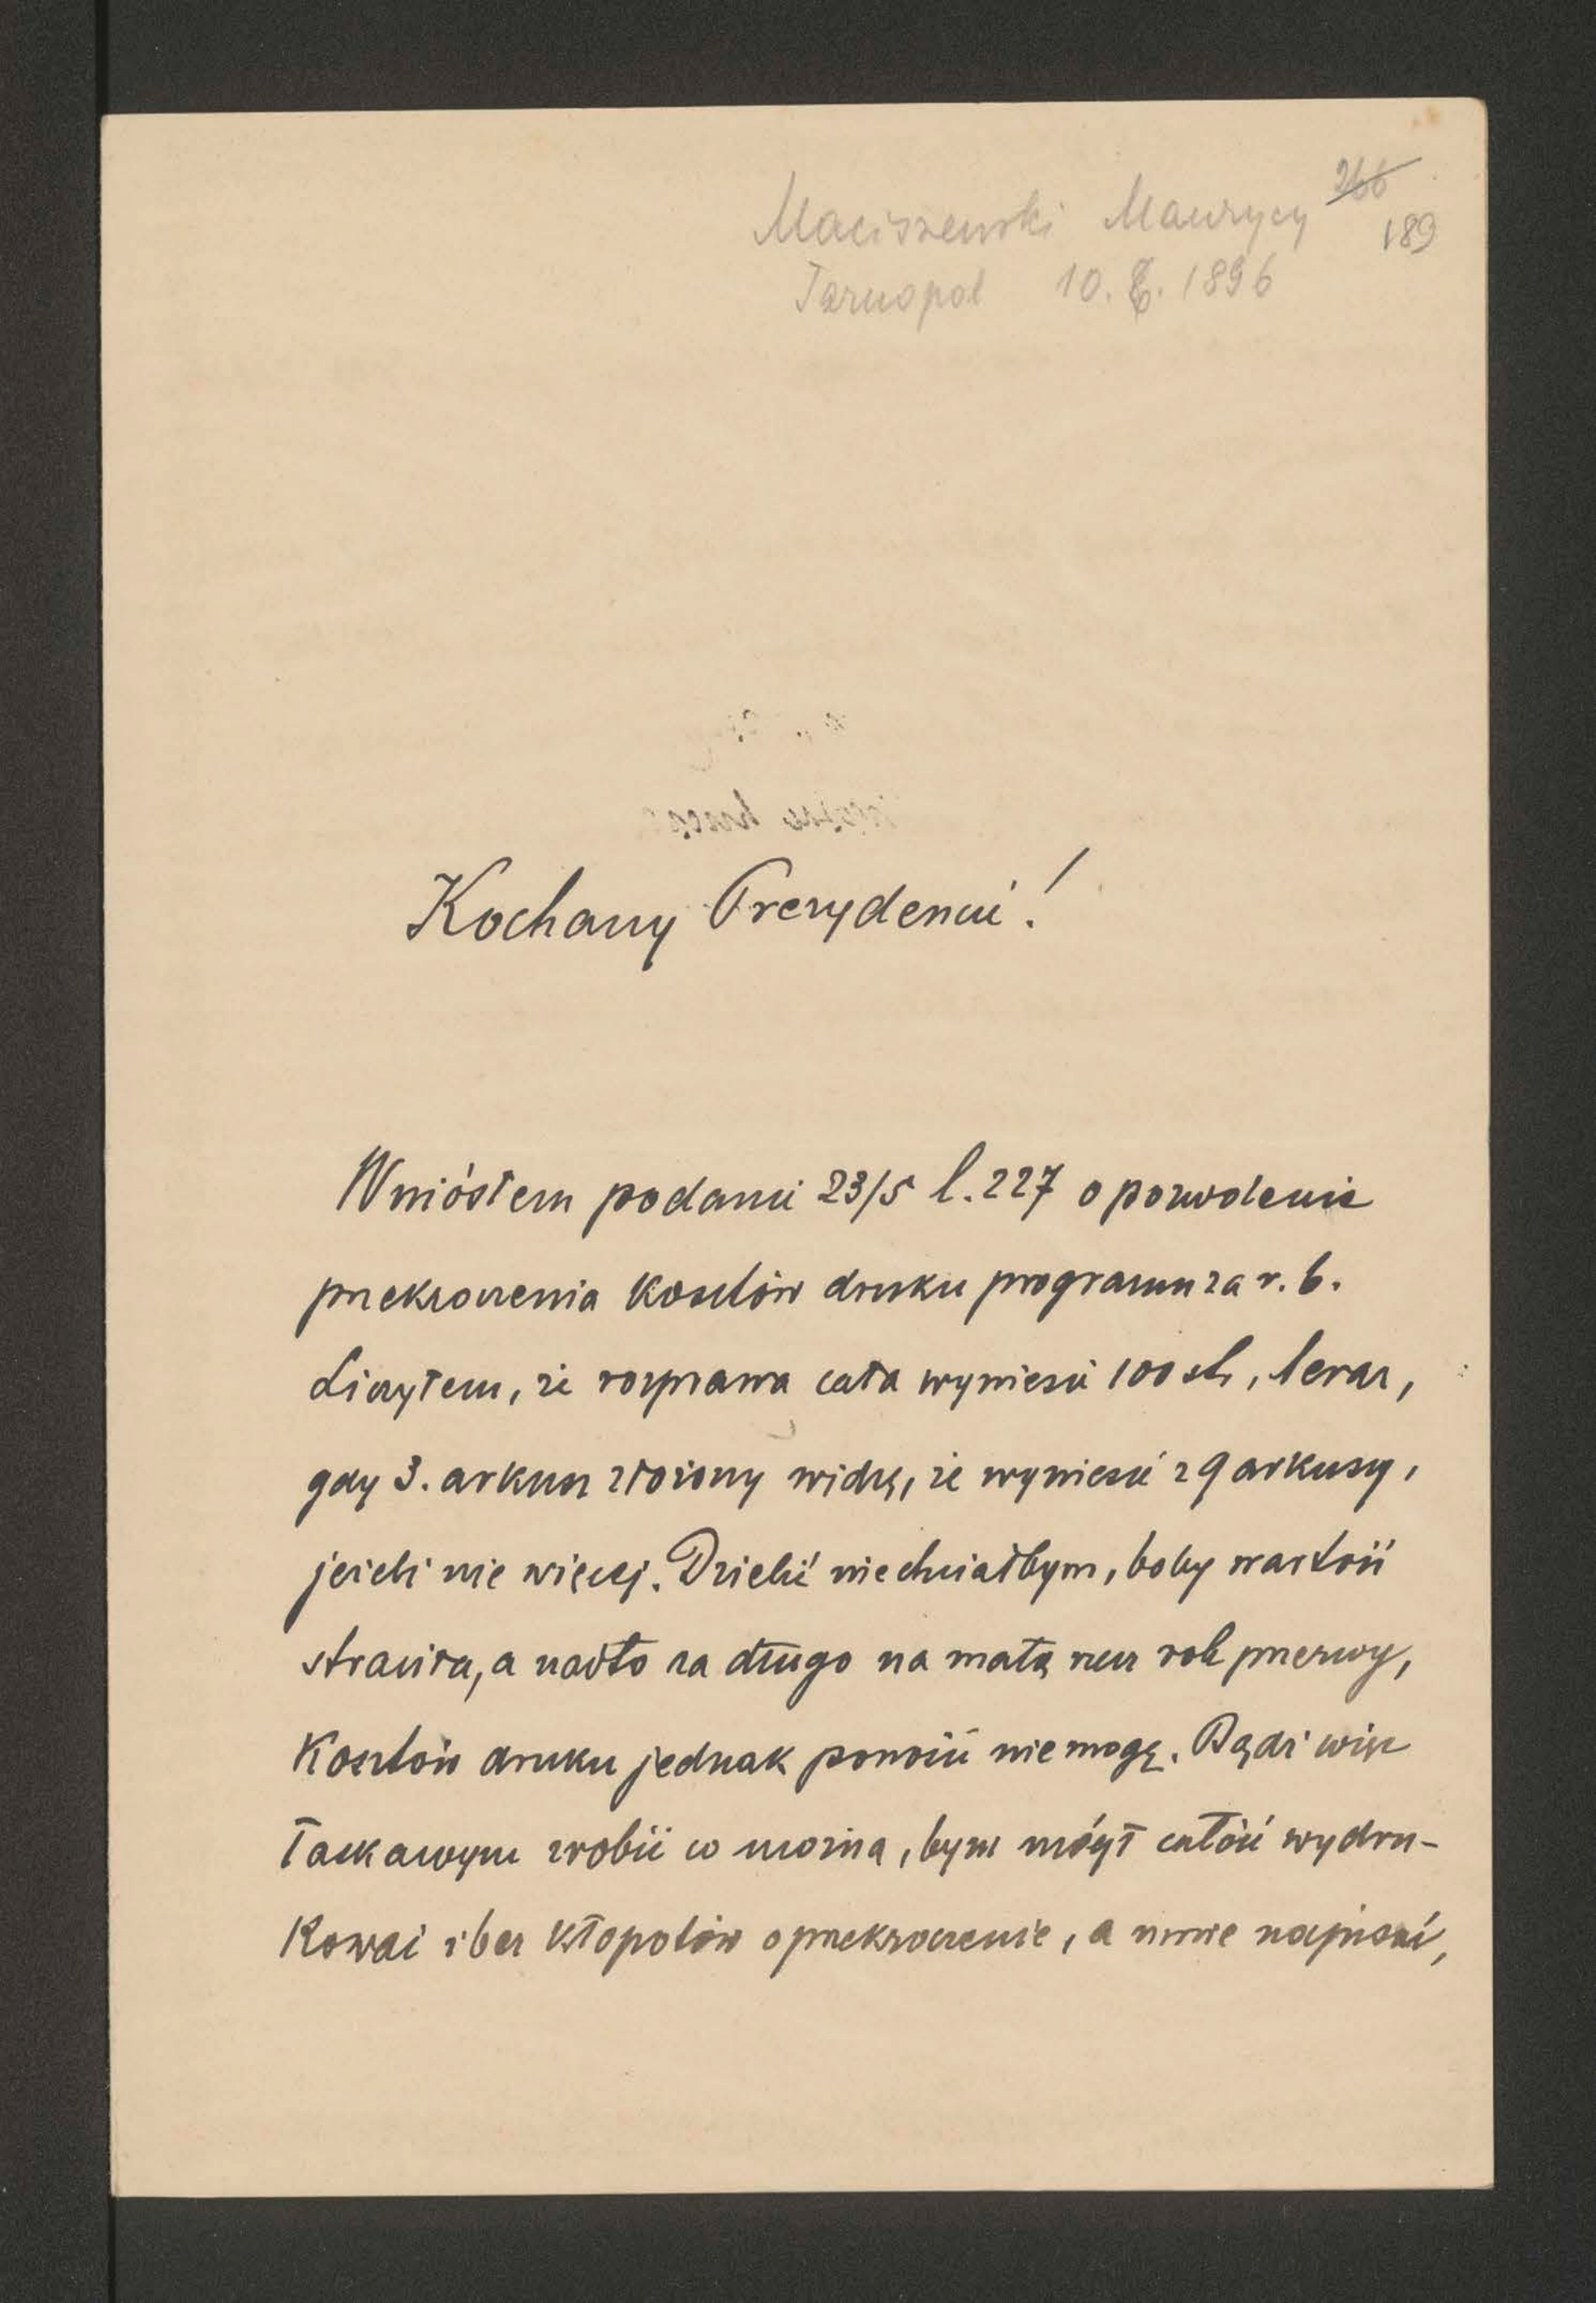 Maciszewski Maurycy 266
189
Tarnopol 10. 6. 1896
Kochany Prezydencie!
Wniósłem podanie 23/5 l. 227 o pozwolenie
przekroczenia kosztów druku programu za r. b.
Liczyłem, że rozprawa cała wyniesie 100 str, teraz,
gdy 3. arkusz złożony widzę, że wyniesie z 9 arkuszy,
jeżeli nie więcej. Dzielić nie chciałbym, boby wartość
straciła, a nadto za długo na małą rzecz rok przerwy,
Kosztów druku jednak ponosić nie mogę. Bądź więc
łaskawym zrobić co można, bym mógł całość wydru-
kować i bez kłopotów o przekroczenie, a mnie napisać,